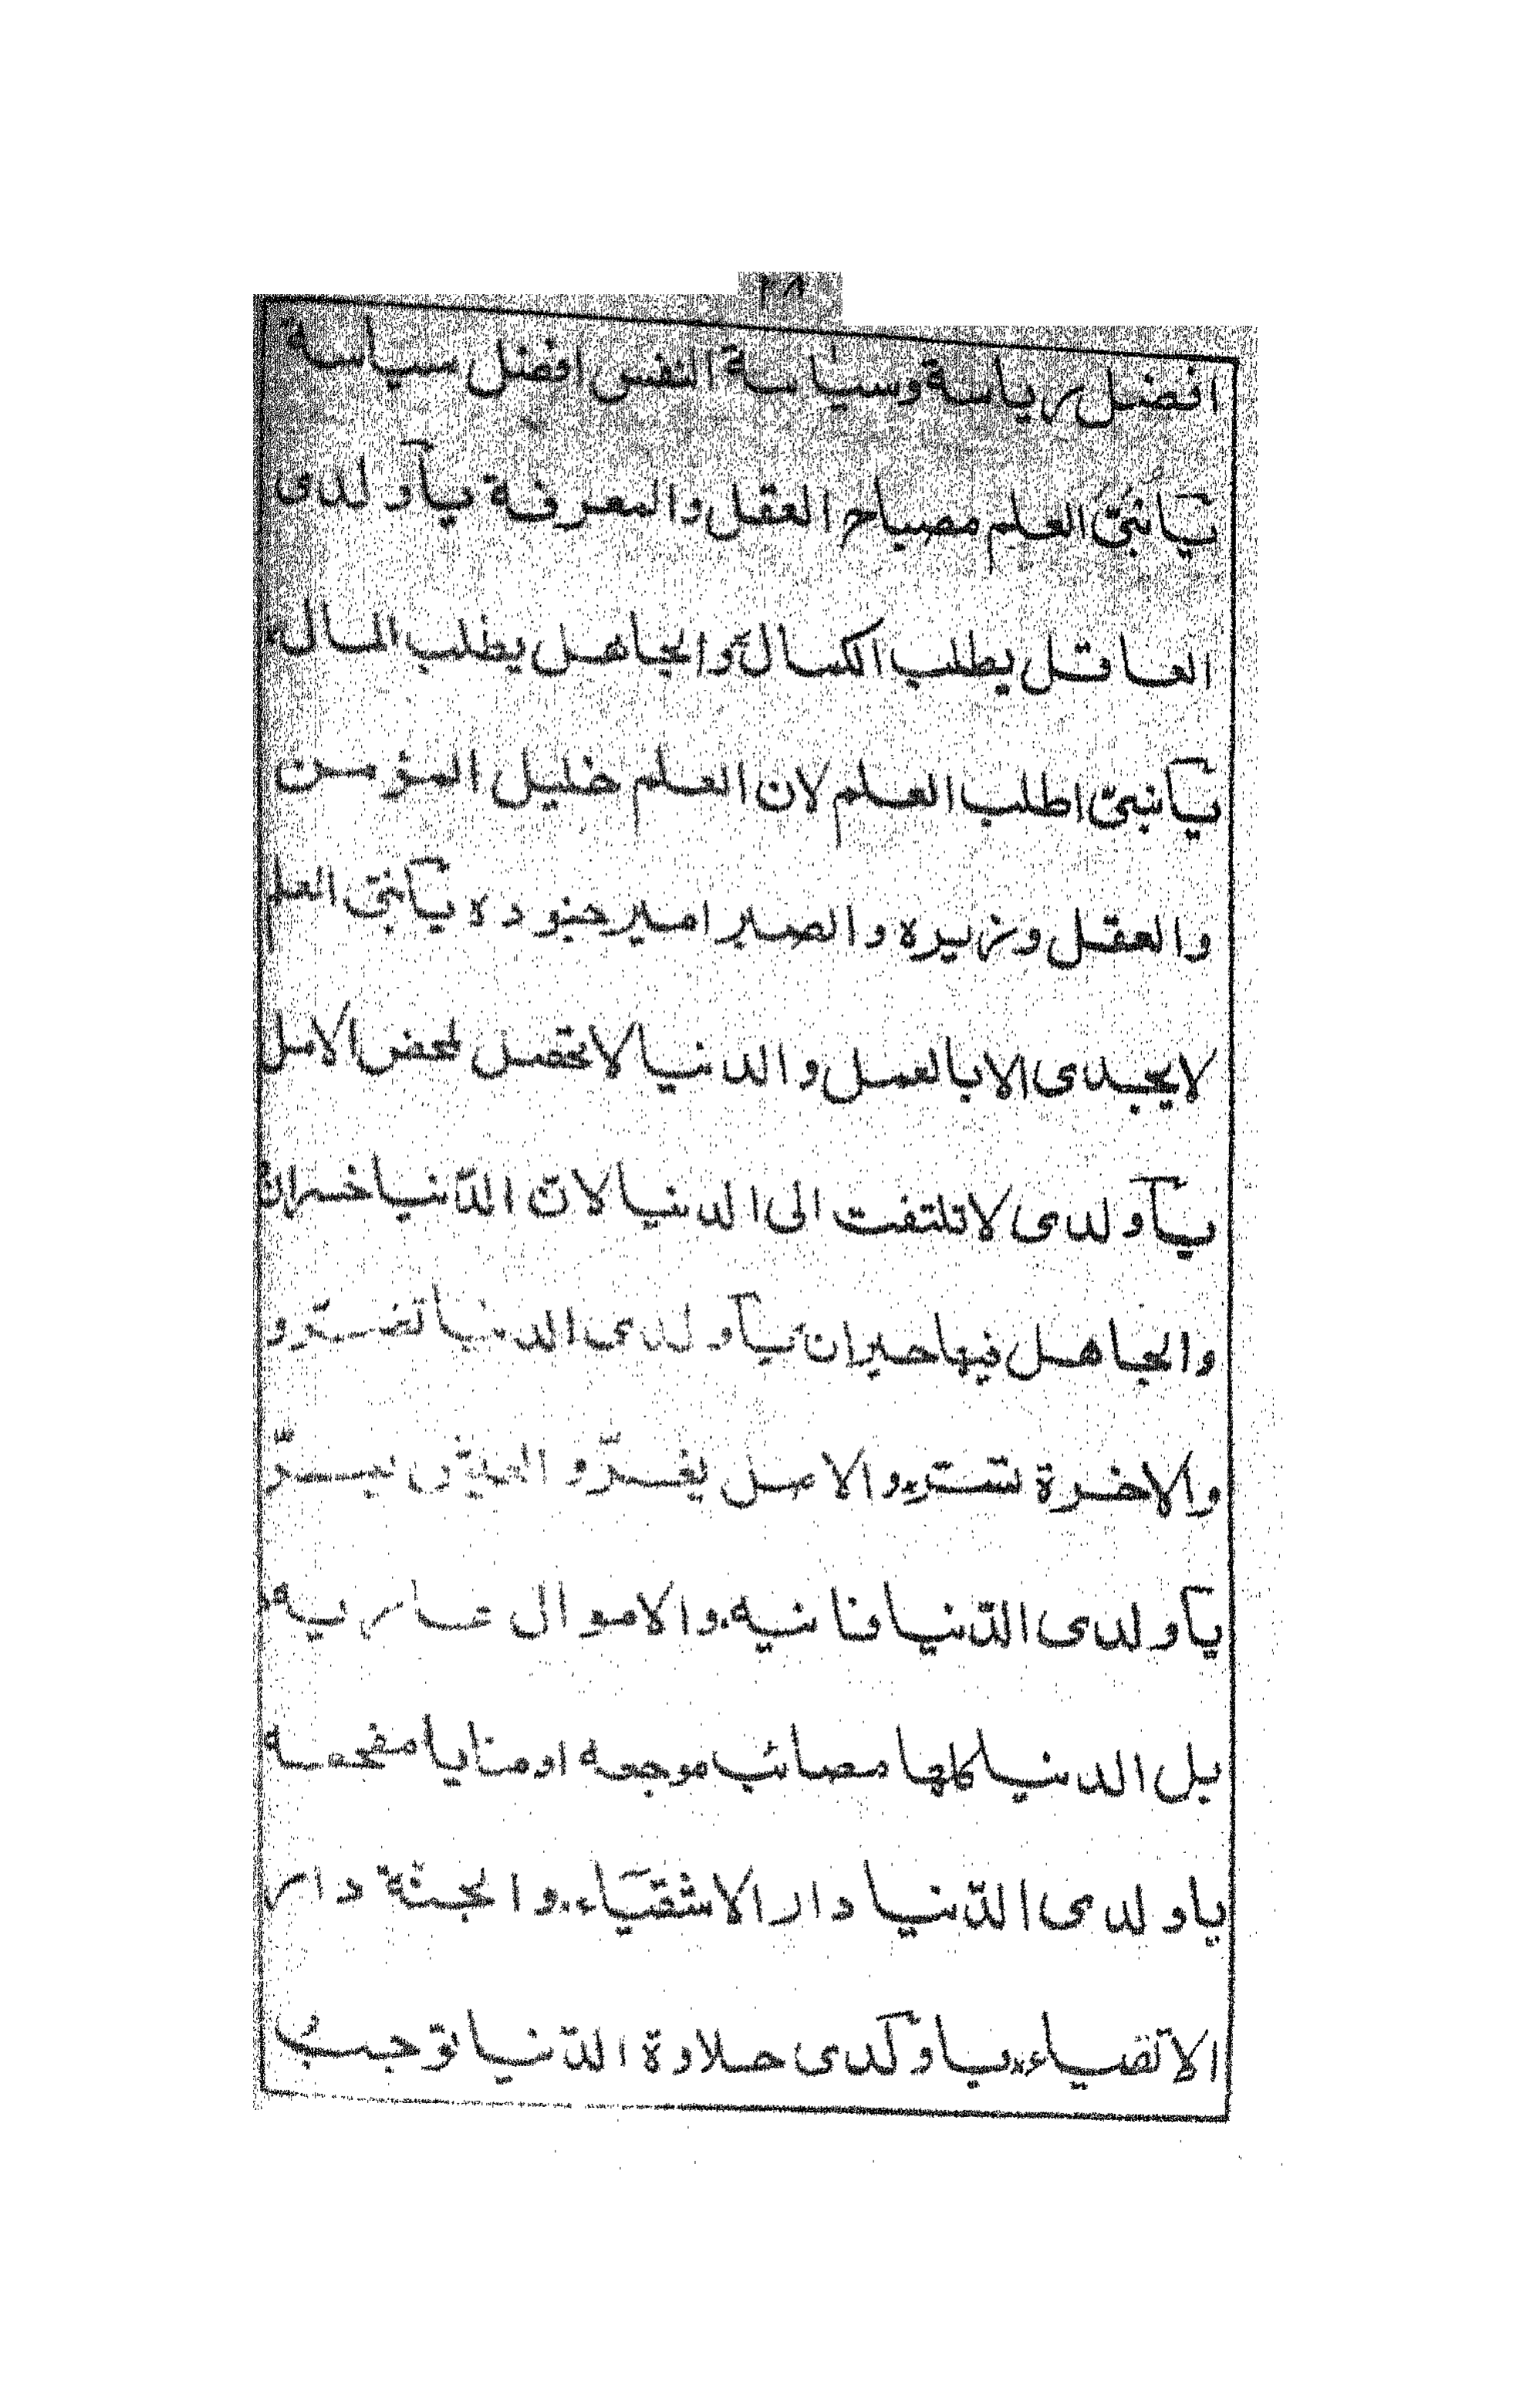 ٣٨
افضل رياسة وسياسة النفس افضل سياسة
يآبنىّ العلم مصباح العقل والمعرفة يآولدى
العاقل يطلب الكمال والجاهل يطلب المال
يآبنىّ اطلب العلم لان العلم خليل المؤمن
والعقل وزيره والصبر امير جنوده يآبنىّ العلم
لا يجدى الا بالعمل والدنيا لا تحصل لمحض الامل
يآولدى لا تلتفت الى الدنيا لان الدّنيا خسران
والجاهل فيها حيران يآولدى الدنيا تضرّ و
والاخرة تسرّ والامل يغرّ و يسرّ
يآولدى الدّنيا فانيه والاموال عاريه
بل الدنيا كلها مصائب موجعه او منايا مفجعه
ياولدى الدّنيا دار الاشقيآء والجنّة دار
الاتقياء ياولدى حلاوة الدّنيا توجب